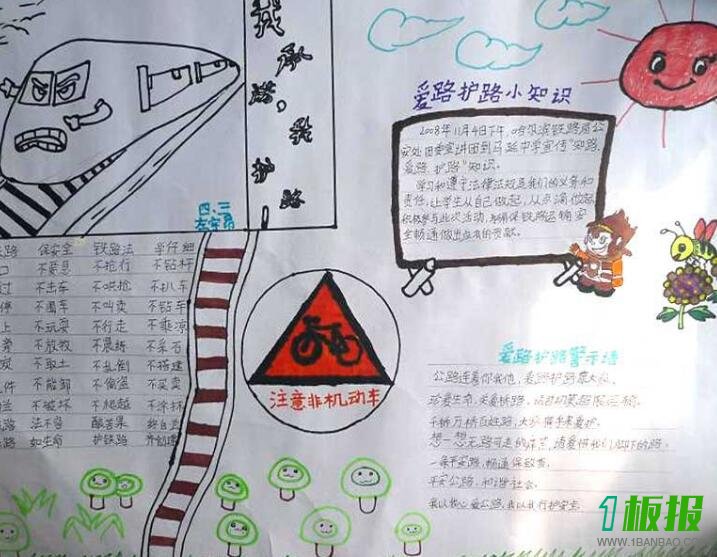 我承诺,我护路
爱路护路小知识
2008年11月4日下午,哈尔滨铁路局公
安处团委宣讲团到马延中学宣传"知路、
爱路、护路"知识。
学习和遵守法律法规是我们的义务和
责任,让学生从自己做起,从点滴做起,
积极参与此次活动,为确保铁路运输安
全畅通做出应有的贡献。
四、三
路 保安全 铁路法 牵仔细
口 不爱惠 不抢行 不钻杆
过 不击车 不哄抢 不扒车
停 不围车 不叫卖 不钻车
上 不玩耍 不行走 不乘凉
不放牧 不晨练 不采石
炭 不取土 不乱倒 不搭建
件 不能卸 不偷盗 不买卖
不破坏 不爬越 不涂抹
路 法不容 酿苦果 终自
路 如生命 护铁路
注意非机动车
爱路护路警示墙
公路连着你我他,爱路护路靠大家。
珍爱生命,关爱桥路,
千桥万桥百姓路,大家携手来爱护。
想一想无路可走的
一条平安路,畅通保致富。
平安公路,和谐社会。
我以我心爱公路,我以我行护安全。
1板报
WWW.1BANBAO.COM